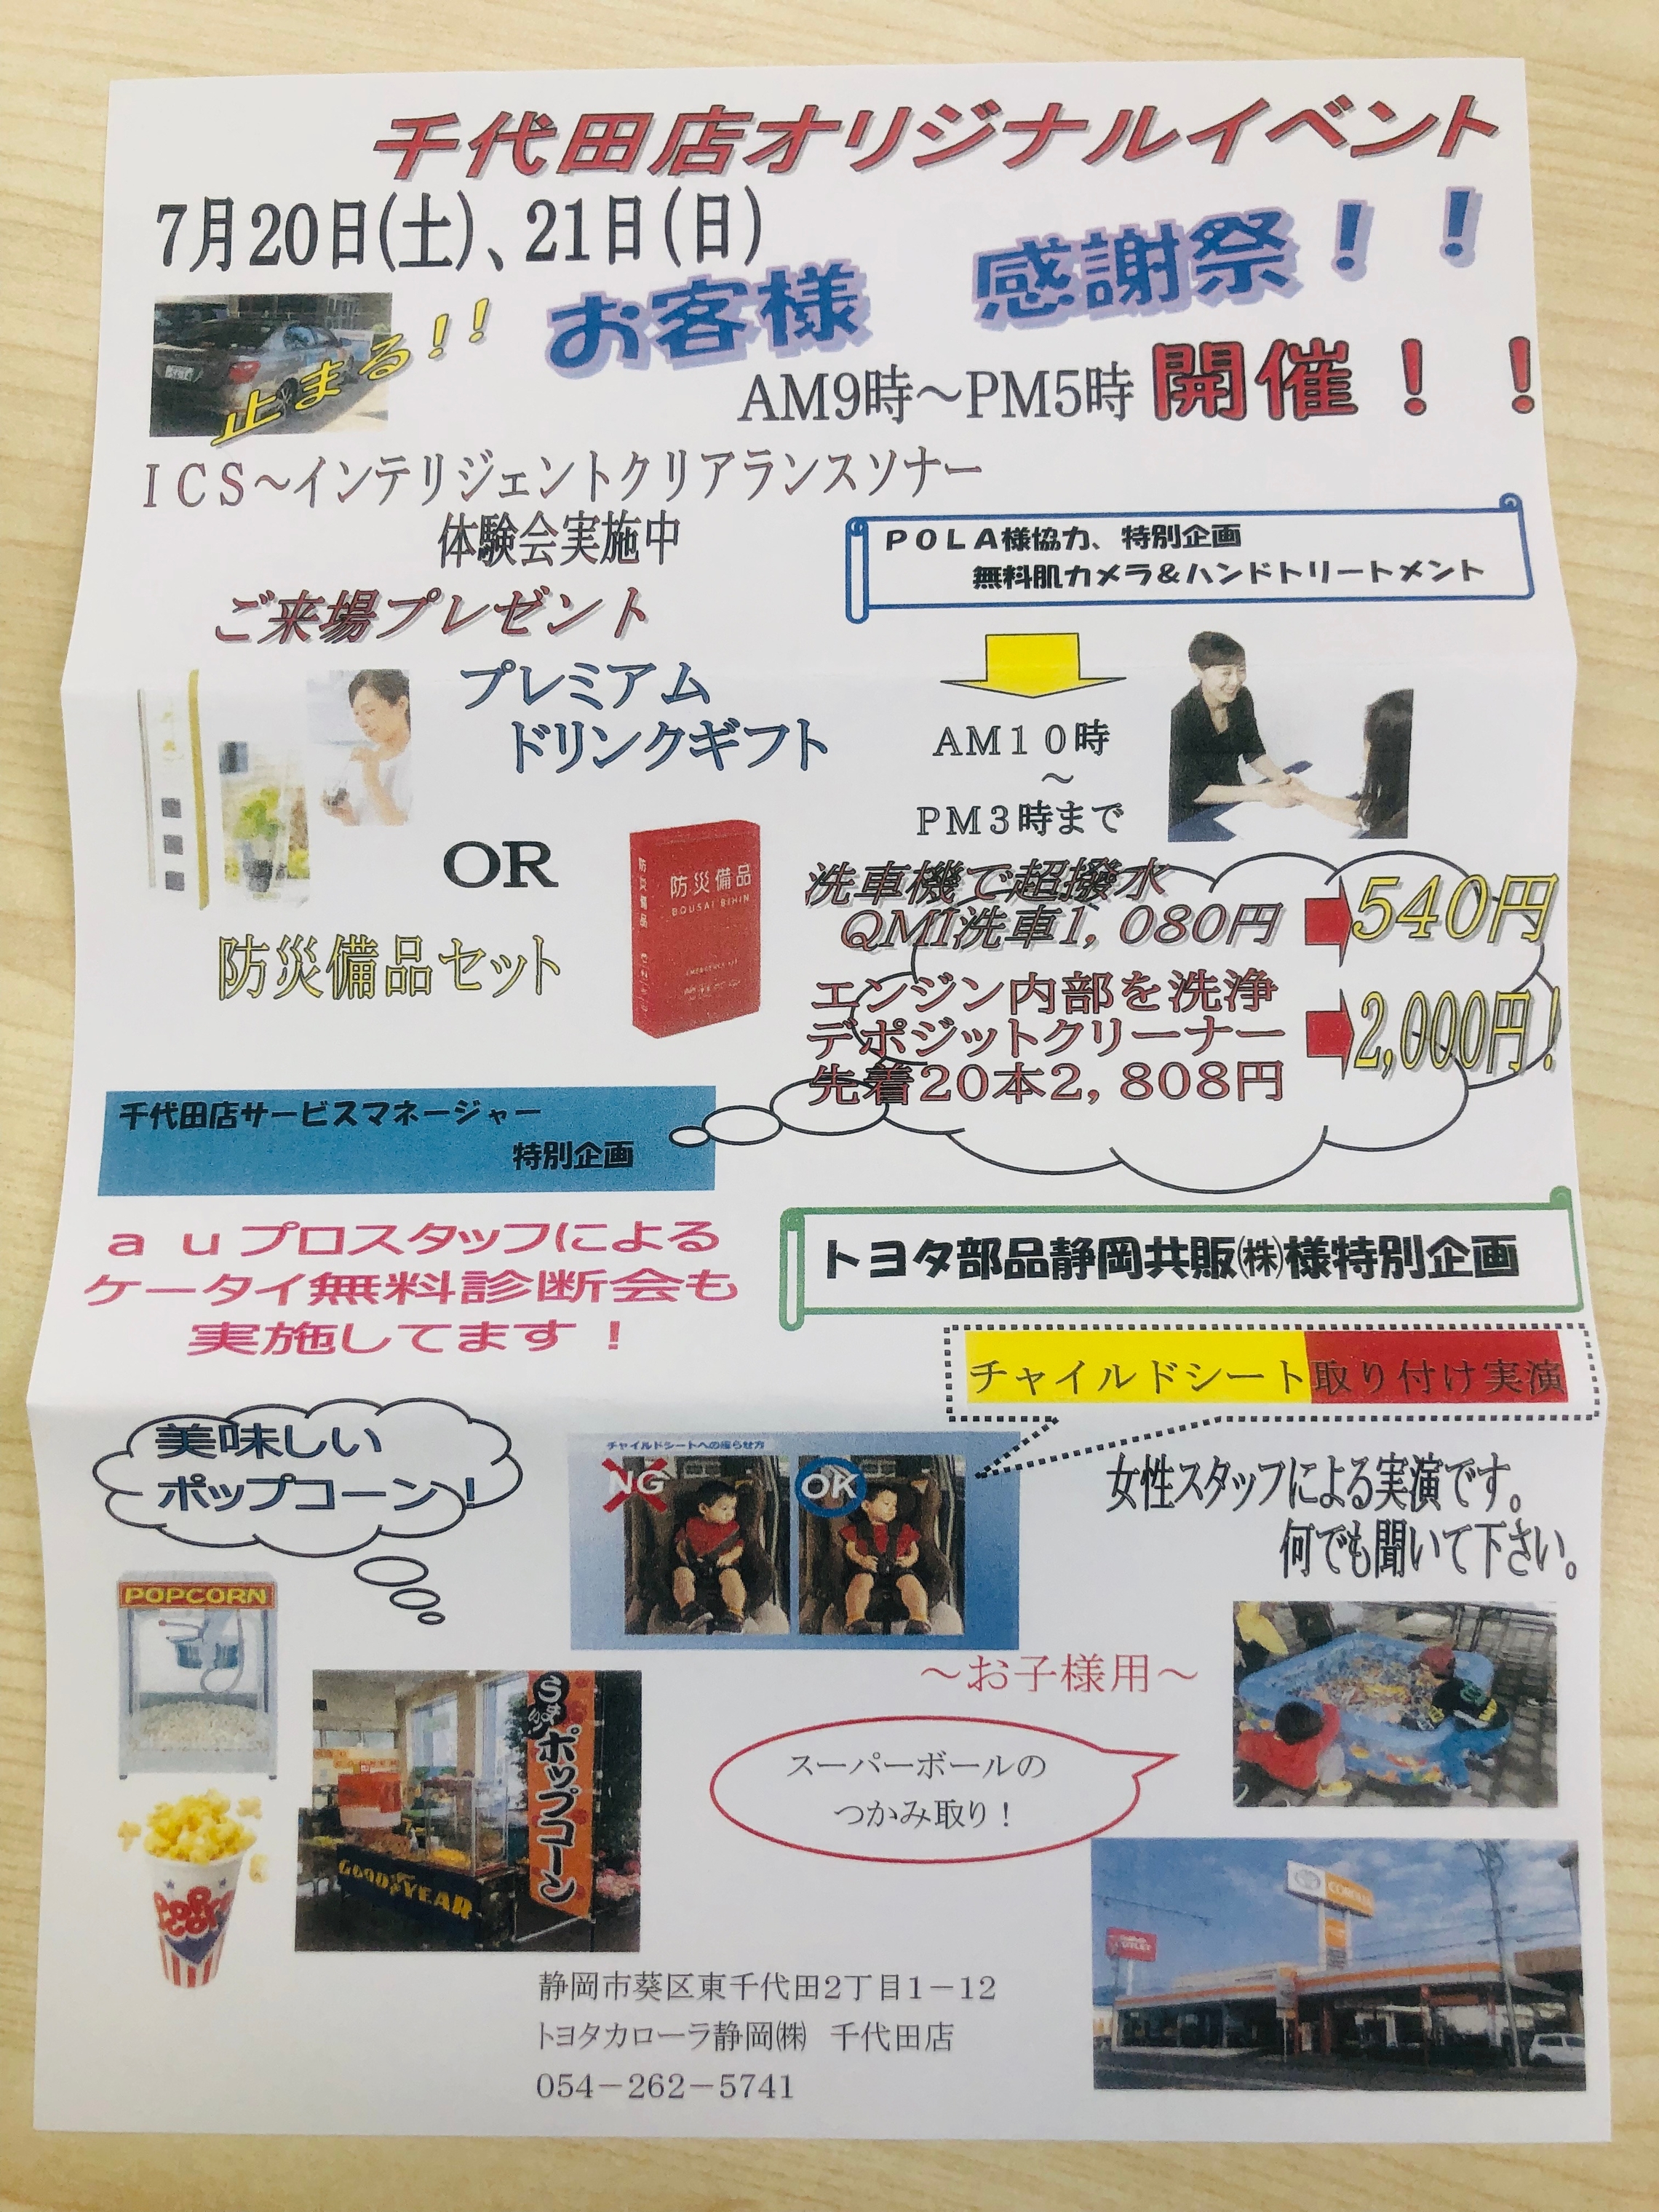 千代田店オリジナルイベント
7月20日(土)、21日(日)
お客様 感謝祭！！
止まる!!
AM9時～PM5時 開催！！
ICS～インテリジェントクリアランスソナー
体験会実施中
POLA様協力、特別企画
無料肌カメラ&ハンドトリートメント
ご来場プレゼント
プレミアム
ドリンクギフト
AM１０時
～
PM３時まで
OR
防災備品
BOUSAI BIHIN
防災備品
防災備品セット
洗車機で超撥水
QMI洗車1,080円
540円
エンジン内部を洗浄
デポジットクリーナー
先着20本2,808円
2,000円!
千代田店サービスマネージャー
特別企画
auプロスタッフによる
ケータイ無料診断会も
実施してます！
トヨタ部品静岡共販㈱様特別企画
チャイルドシート取り付け実演
美味しい
ポップコーン!
チャイルドシートへの座らせ方
NG
OK
女性スタッフによる実演です。
何でも聞いて下さい。
POPCORN
～お子様用～
スーパーボールの
つかみ取り！
ポップコーン
GOODYEAR
静岡市葵区東千代田2丁目1－12
トヨタカローラ静岡㈱ 千代田店
054－262－5741